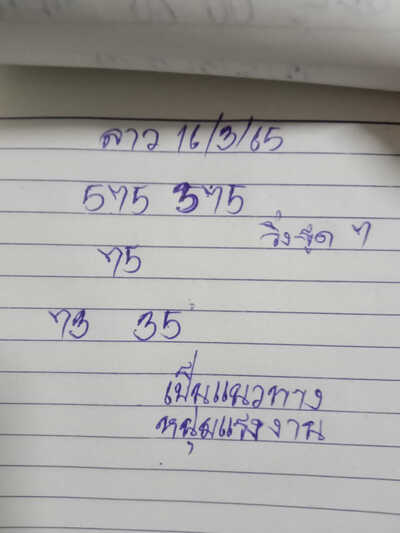 ลาว 16/3/65
575 375
วิ่ง-รูด 7
75
73 35
เป็นแนวทาง
หนุ่มแรงงาน